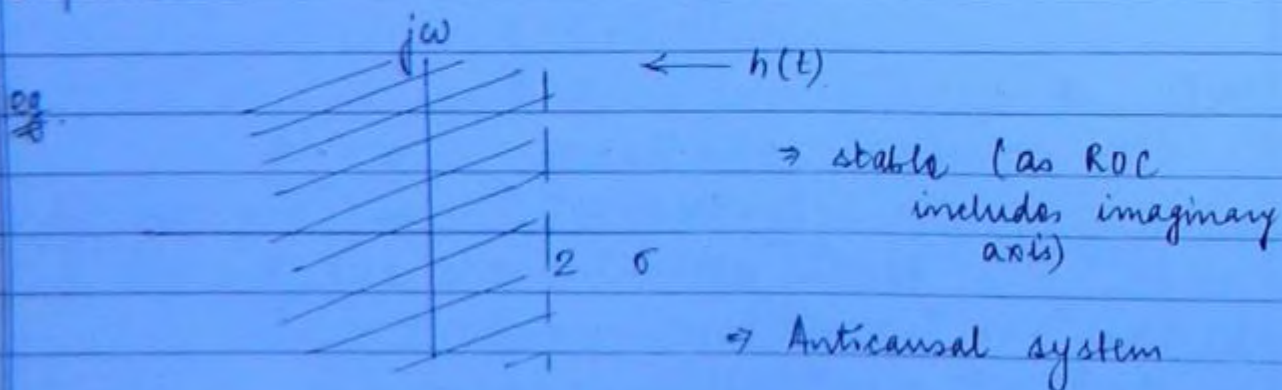 jω
← h(t)
eg.
⇒ stable (as ROC
includes imaginary
axis)
2 σ
⇒ Anticausal system